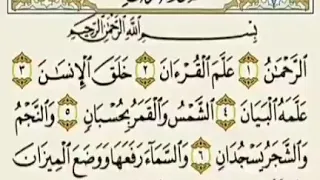 بِسْمِ ٱللَّهِ ٱلرَّحْمَٰنِ ٱلرَّحِيمِ
ٱلرَّحْمَٰنُ ١ عَلَّمَ ٱلْقُرْءَانَ ٢ خَلَقَ ٱلْإِنسَٰنَ ٣
عَلَّمَهُ ٱلْبَيَانَ ٤ ٱلشَّمْسُ وَٱلْقَمَرُ بِحُسْبَانٍ ٥ وَٱلنَّجْمُ
وَٱلشَّجَرُ يَسْجُدَانِ ٦ وَٱلسَّمَآءَ رَفَعَهَا وَوَضَعَ ٱلْمِيزَانَ